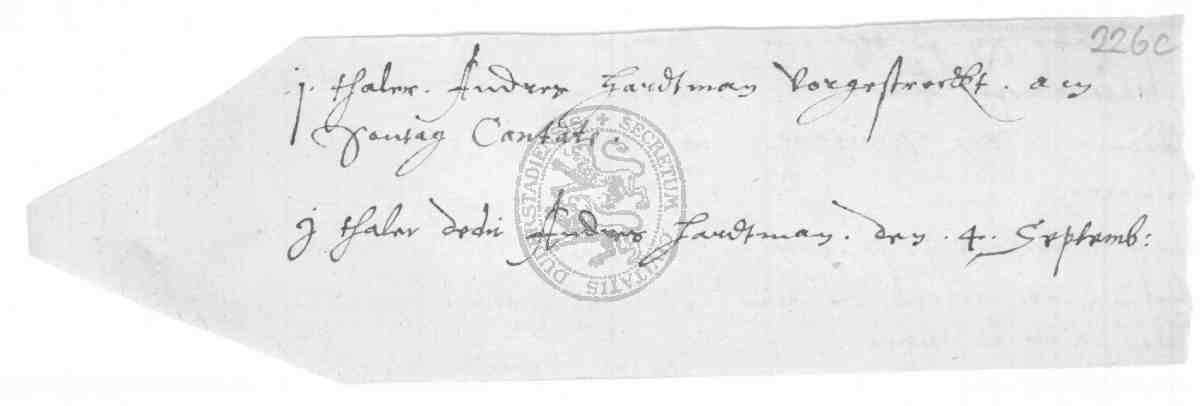 226c
j. thaler. Andres Hardtman vorgestreckt. am
Sontag Cantate.
j thaler dedit Andres Hardtman. den. 4. Septemb:
SECRETUM CIVITATIS DUDERSTADIENSIS